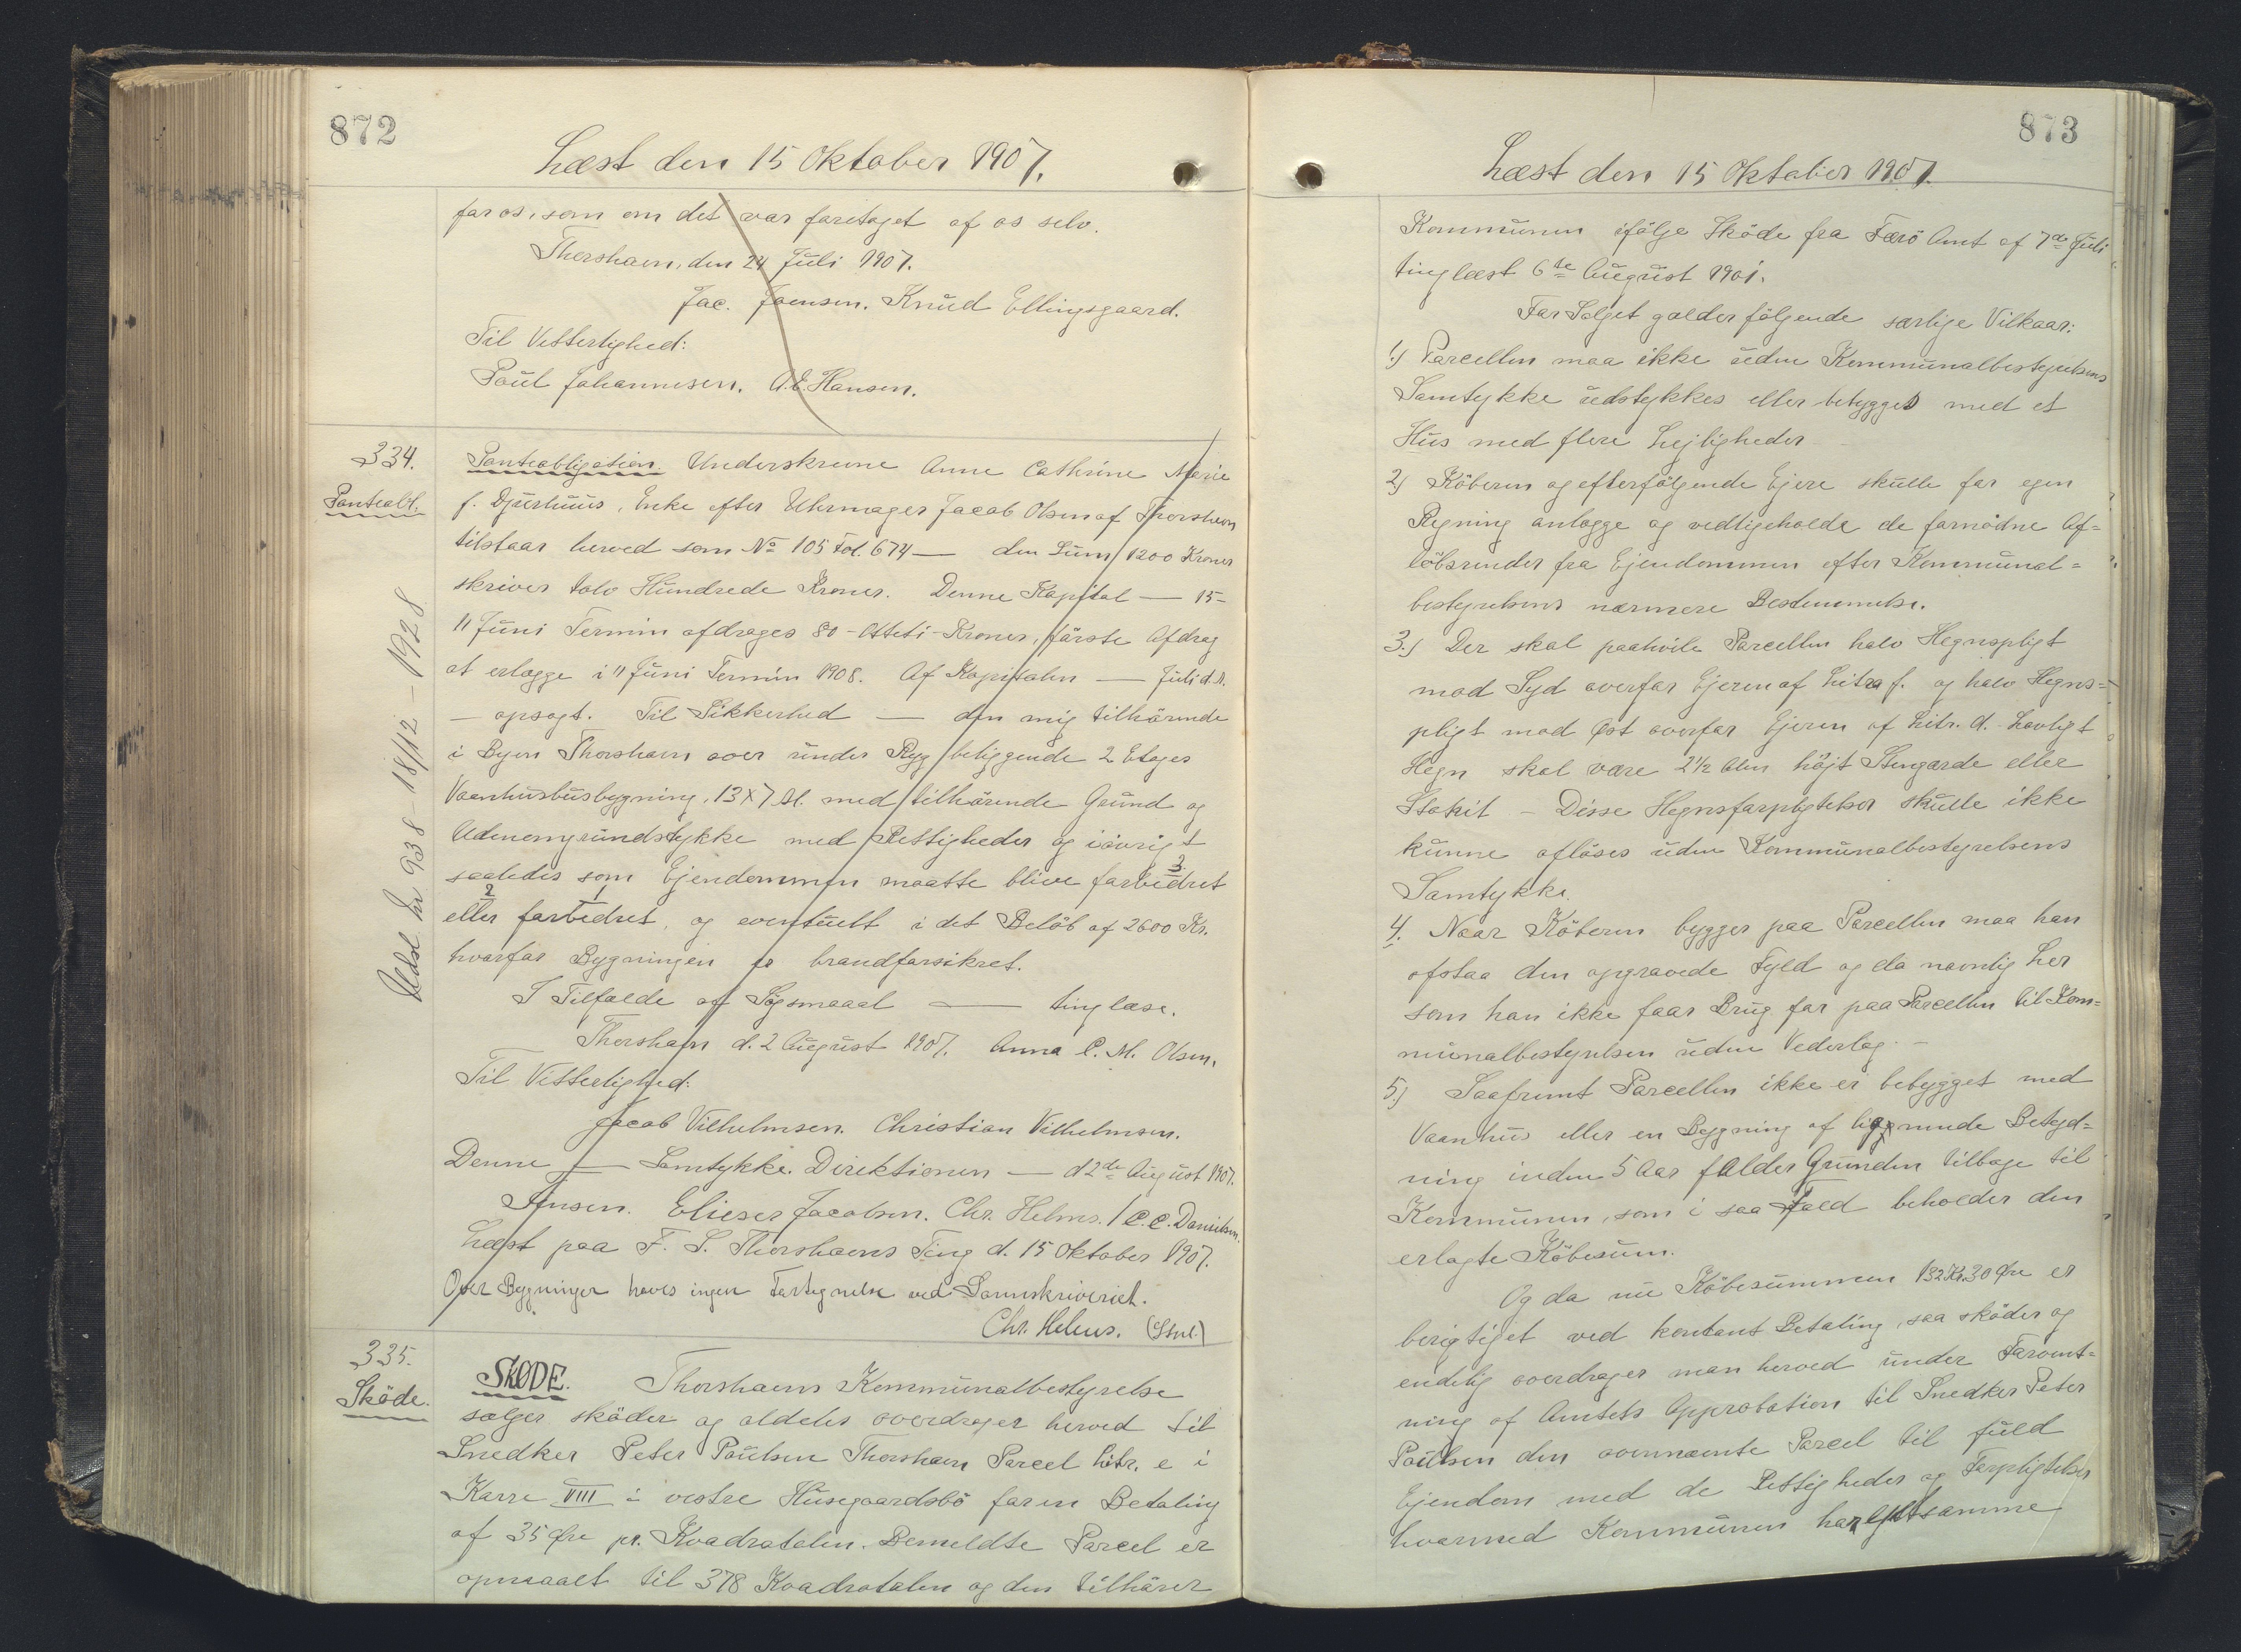 872
Læst den 15 Oktober 1907.
for os, som om det var foretaget af os selv.
Thorshavn, den 24 Juli 1907.
Jac. Joensen. Knud Ellingsgaard.
Til Vitterlighed:
Poul Johannesen. A. E. Hansen.
334.
Panteobl.
Panteobligation. Underskrevne Anne Cathrine Marie
f. Djurhuus, Enke efter Uhrmager Jacob Olsen af Thorshavn
tilstaar herved som No 105 Fol. 674 — den Sum 1200 Kroner
skriver tolv Hundrede Kroner. Denne Kapital — 15-
11 Juni Termin afdrages 80 - Otteti - Kroner, første Afdrag
at erlægge i 11 Juni Termin 1908. Af Kapitalen — Juli d. A.
— opsagt. Til Sikkerhed — den mig tilhørende
i Byen Thorshavn over under Ryg beliggende 2 Etages
Vaanhusbusbygning, 13 x 7 Al. med tilhørende Grund og
Udenomgrundstykke med Rettigheder og iøvrigt
saaledes som Ejendommen maatte blive forbedret
3
2 1
eller forbedret, og eventuelt i det Beløb af 2600 Kr.
hvorfor Bygningen er brandforsikret.
I Tilfælde af Søgsmaaal — tinglæse.
Thorshavn d. 2 August 1907. Anna C. M. Olsen.
Til Vitterlighed:
Jacob Vilhelmsen. Christian Vilhelmsen.
Denne — Samtykke. Direktionen — d 2de August 1907.
Jensen. Elieser Jacobsen. Chr. Helms. / C. C. Danielsen.
Læst paa F. S. Thorshavns Ting d. 15 Oktober 1907.
Over Bygninger haves ingen Fortegnelse ved Sorenskriveriet.
Chr. Helms. (Stul.)
Udsl Nr 938 - 18/12 - 1928
335.
Skøde.
SKØDE. Thorshavns Kommunalbestyrelse
sælger skøder og aldeles overdrager herved til
Snedker Peter Poulsen Thorshavn Parcel Litr. e i
Karre VIII i vestre Husegaardsbø for en Betaling
af 35 Øre pr. Kvadratalen. Bemeldte Parcel er
opmaalt til 378 Kvadratalen og den tilhører
873
Læst den 15 Oktober 1907.
Kommunen ifølge Skøde fra Færø Amt af 7de Juli
tinglæst 6te August 1901.
For Salget gælder følgende særlige Vilkaar:
1.) Parcellen maa ikke uden Kommunalbestyrelsens
Samtykke udstykkes eller bebygges med et
Hus med flere Lejligheder
2.) Køberen og efterfølgende Ejere skulle for egen
Regning anlægge og vedligeholde de fornødne Af=
løbsrender fra Ejendommen efter Kommunal=
bestyrelsens nærmere Bestemmelse.
3.) Der skal paahvile Parcellen halv Hegnspligt
mod Syd overfor Ejeren af Litra f. og halv Hegns=
pligt mod Øst overfor Ejeren af Litr. d. - Lovligt
Hegn skal være 2 1/2 Alen højt Stengærde eller
Stakit - Disse Hegnsforpligtelser skulle ikke
kunne afløses uden Kommunalbestyrelsens
Samtykke.
4. Naar Køberen bygger paa Parcellen maa han
afstaa den opgravede Fyld og da navnlig Ler
som han ikke faar Brug for paa Parcellen til Kom=
munalbestyrelsen uden Vederlag. -
5.) Saafremt Parcellen ikke er bebygget med
Vaanhus eller en Bygning af lignende Betyd=
ning inden 5 Aar falder Grunden tilbage til
Kommunen, som i saa Fald beholder den
erlagte Købesum.
Og da nu Købesummen 132 Kr. 30 Øre er
berigtiget ved kontant Betaling, saa skøder og
endelig overdrager man herved under Forvent=
ning af Amtets Approbation til Snedker Peter
Poulsen den ovennævnte Parcel til fuld
Ejendom med de Rettigheder og Forpligtelser
hvormed Kommunen har ejet samme